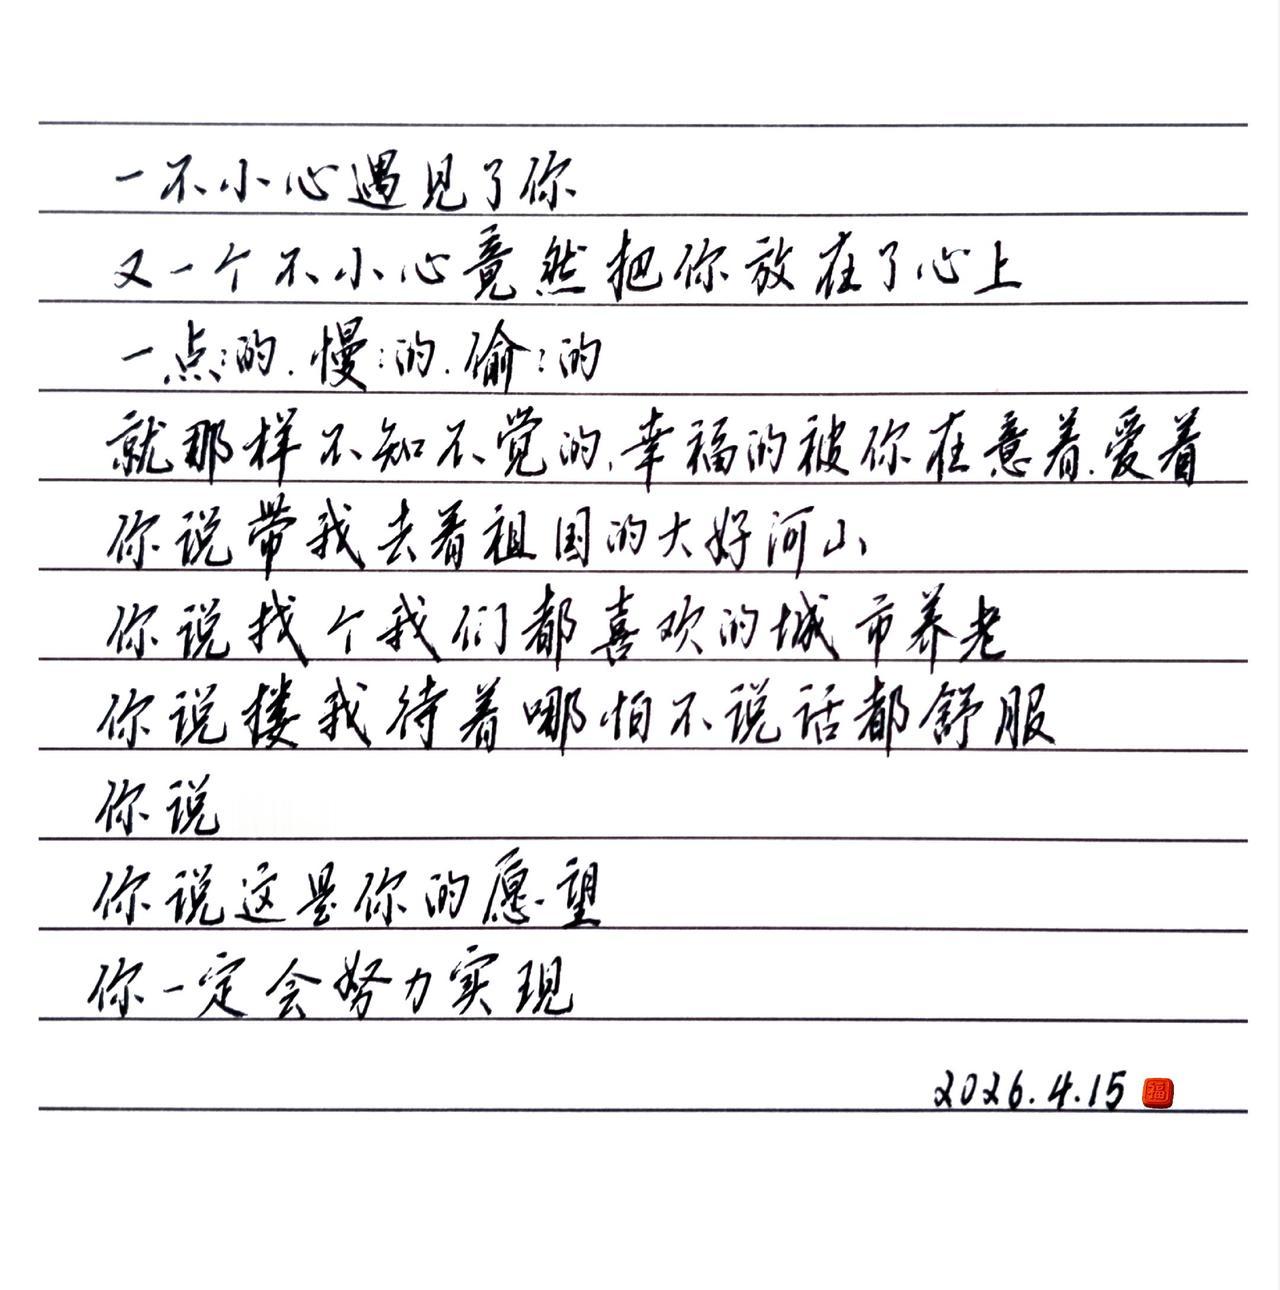 一不小心遇见了你
又一个不小心竟然把你放在了心上
一点:的.慢:的.偷:的
就那样不知不觉的,幸福的被你在意着.爱着
你说带我去看祖国的大好河山
你说找个我们都喜欢的城市养老
你说搂我待着哪怕不说话都舒服
你说
你说这是你的愿望
你一定会努力实现
2026.4.15 福